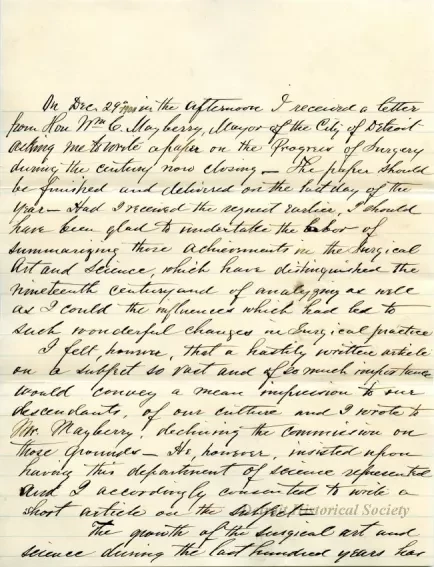 On Dec. 29th 1900 in the afternoon I received a letter
from Hon Wm C. Mayberry, Mayor of the City of Detroit
asking me to write a paper on the Progress of Surgery
during the century now closing — The paper should
be finished and delivered on the last day of the
year — Had I received the request earlier, I should
have been glad to undertake the labor of
summarizing those achievements in the Surgical
Art and Science, which have distinguished the
nineteenth century and of analyzing as well
as I could the influences which had led to
such wonderful changes in Surgical practice
I felt, however, that a hastily written article
on a subject so vast and of so much importance
would convey a mean impression to our
descendants, of our culture and I wrote to
Mr. Mayberry, declining the commission on
those grounds — He, however, insisted upon
having this department of science represented
and I accordingly consented to write a
short article on the subject.
Detroit Historical Society
The growth of the surgical art and
science during the last hundred years has